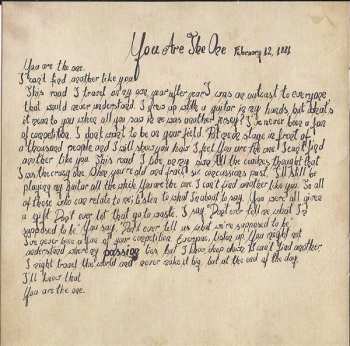 You Are The One February 12, 1981
You are the one.
I can't find another like you
This road I travel on my own year after year I was an outcast to everyone
that would never understand I grew up with a guitar in my hands, but what's
it mean to you when all you saw in me was another jersey? I've never been a fan
of competition. I don't want to be on your field. Put me on stage in front of
a thousand people and I will show you how I feel You are the one I can't find
another like you. This road I take on my own All the coaches thought that
I was the crazy one When you're old and frail six concussions past, I'll still be
playing my guitar all the while You are the one I can't find another like you. So all
of those who can relate to me listen to what I'm about to say. You were all given
a gift Don't ever let that go to waste. I say, "Don't ever tell me what I'm
supposed to be" You say, "Don't ever tell us what we're supposed to be"
I've never been a fan of your competition Everyone, listen up. You might not
understand where my passion lies, but I know where it is can't find another
I might travel the world and never make it big, but at the end of the day
I'll know that
You are the one.